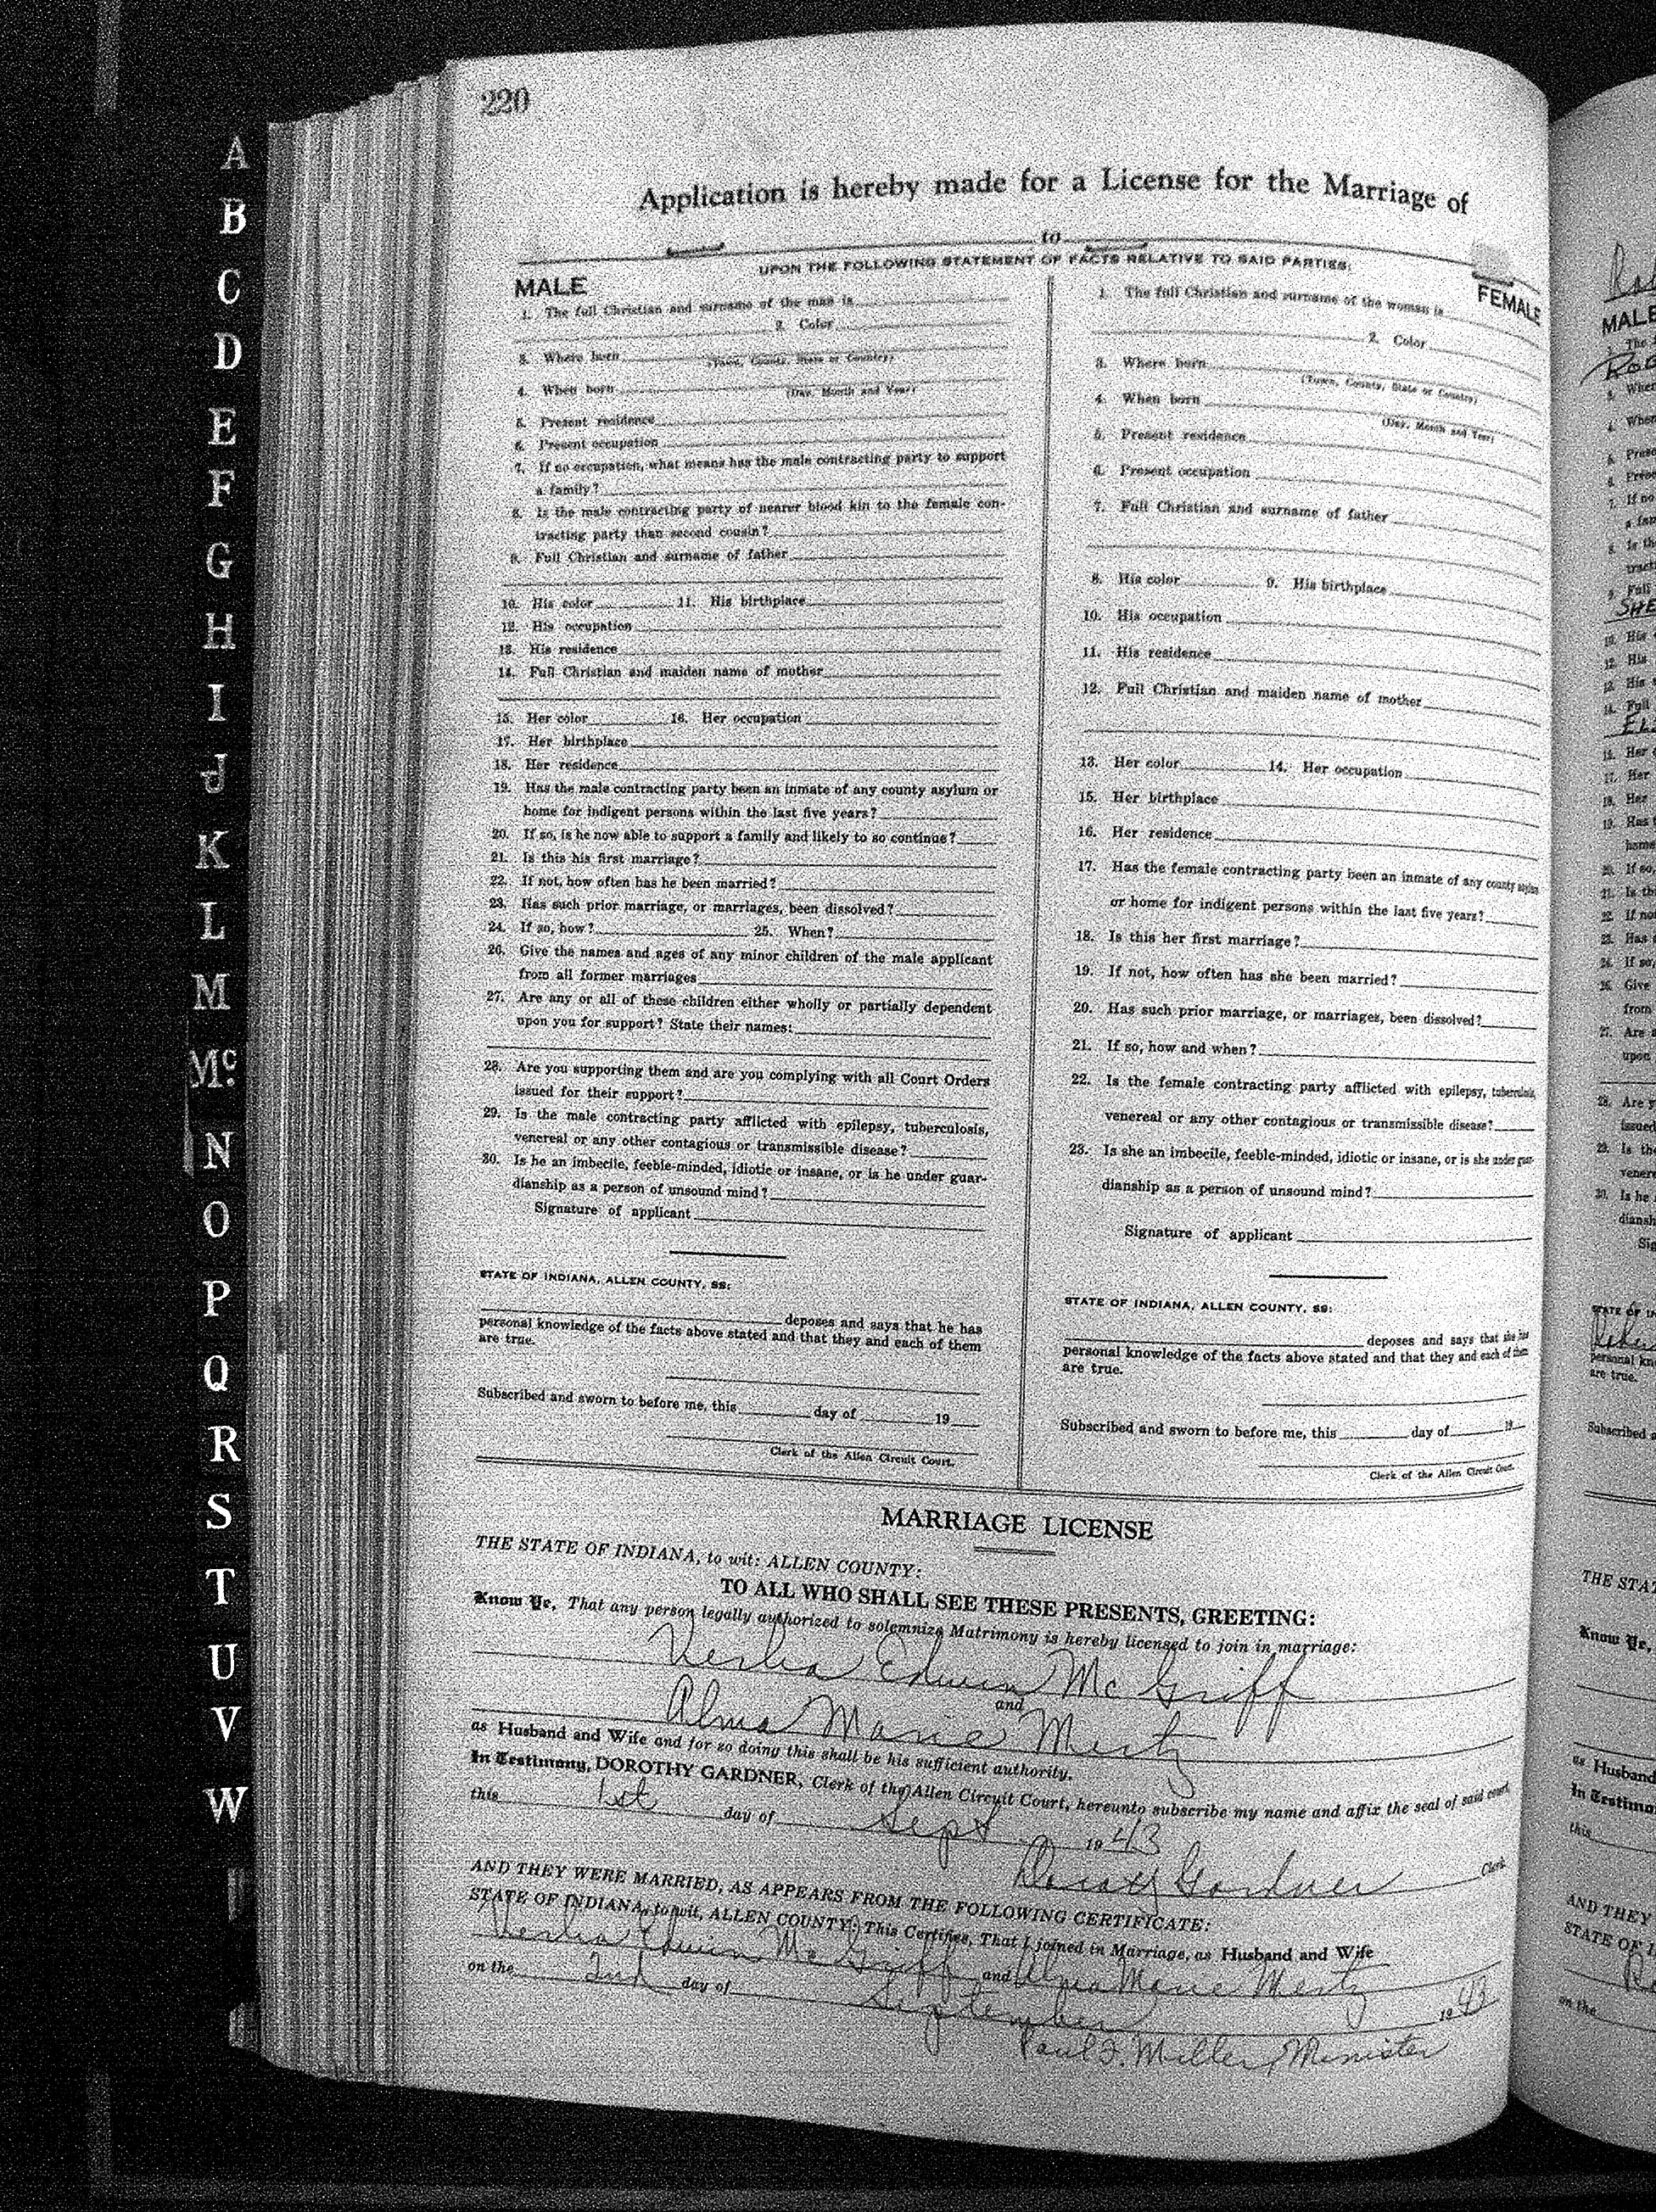 220
Application is hereby made for a License for the Marriage of
to
UPON THE FOLLOWING STATEMENT OF FACTS RELATIVE TO SAID PARTIES:
MALE
1. The full Christian and surname of the man is
2. Color
3. Where born
(Town, County, State or Country)
4. When born
(Day, Month and Year)
5. Present residence
6. Present occupation
7. If no occupation, what means has the male contracting party to support
a family?
8. Is the male contracting party of nearer blood kin to the female con-
tracting party than second cousin?
9. Full Christian and surname of father
10. His color 11. His birthplace
12. His occupation
13. His residence
14. Full Christian and maiden name of mother
15. Her color 16. Her occupation
17. Her birthplace
18. Her residence
19. Has the male contracting party been an inmate of any county asylum or
home for indigent persons within the last five years?
20. If so, is he now able to support a family and likely to so continue?
21. Is this his first marriage?
22. If not, how often has he been married?
23. Has such prior marriage, or marriages, been dissolved?
24. If so, how? 25. When?
26. Give the names and ages of any minor children of the male applicant
from all former marriages
27. Are any or all of these children either wholly or partially dependent
upon you for support? State their names:
28. Are you supporting them and are you complying with all Court Orders
issued for their support?
29. Is the male contracting party afflicted with epilepsy, tuberculosis,
venereal or any other contagious or transmissible disease?
30. Is he an imbecile, feeble-minded, idiotic or insane, or is he under guar-
dianship as a person of unsound mind?
Signature of applicant
STATE OF INDIANA, ALLEN COUNTY, SS:
deposes and says that he has
personal knowledge of the facts above stated and that they and each of them
are true.
Subscribed and sworn to before me, this day of 19
Clerk of the Allen Circuit Court.
FEMALE
1. The full Christian and surname of the woman is
2. Color
3. Where born
(Town, County, State or Country)
4. When born
(Day, Month and Year)
5. Present residence
6. Present occupation
7. Full Christian and surname of father
8. His color 9. His birthplace
10. His occupation
11. His residence
12. Full Christian and maiden name of mother
13. Her color 14. Her occupation
15. Her birthplace
16. Her residence
17. Has the female contracting party been an inmate of any county asylum
or home for indigent persons within the last five years?
18. Is this her first marriage?
19. If not, how often has she been married?
20. Has such prior marriage, or marriages, been dissolved?
21. If so, how and when?
22. Is the female contracting party afflicted with epilepsy, tuberculosis,
venereal or any other contagious or transmissible disease?
23. Is she an imbecile, feeble-minded, idiotic or insane, or is she under guar-
dianship as a person of unsound mind?
Signature of applicant
STATE OF INDIANA, ALLEN COUNTY, SS:
deposes and says that she has
personal knowledge of the facts above stated and that they and each of them
are true.
Subscribed and sworn to before me, this day of 19
Clerk of the Allen Circuit Court.
MARRIAGE LICENSE
THE STATE OF INDIANA, to wit: ALLEN COUNTY:
TO ALL WHO SHALL SEE THESE PRESENTS, GREETING:
Know Ye, That any person legally authorized to solemnize Matrimony is hereby licensed to join in marriage:
Verlia Edwin McGriff
and
Alma Marie Mertz
as Husband and Wife and for so doing this shall be his sufficient authority.
In Testimony, DOROTHY GARDNER, Clerk of the Allen Circuit Court, hereunto subscribe my name and affix the seal of said court
this 1st day of Sept 1943
Dorothy Gardner Clerk
AND THEY WERE MARRIED, AS APPEARS FROM THE FOLLOWING CERTIFICATE:
STATE OF INDIANA, to wit, ALLEN COUNTY: This Certifies, That I joined in Marriage, as Husband and Wife
Verlia Edwin McGriff and Alma Marie Mertz
on the 2nd day of September 1943
Paul F. Miller, Minister
A
B
C
D
E
F
G
H
I
J
K
L
M
Mc.
N
O
P
Q
R
S
T
U
V
W
MALE
THE STA
Know Ye,
as Husband
this
AND THEY
on the